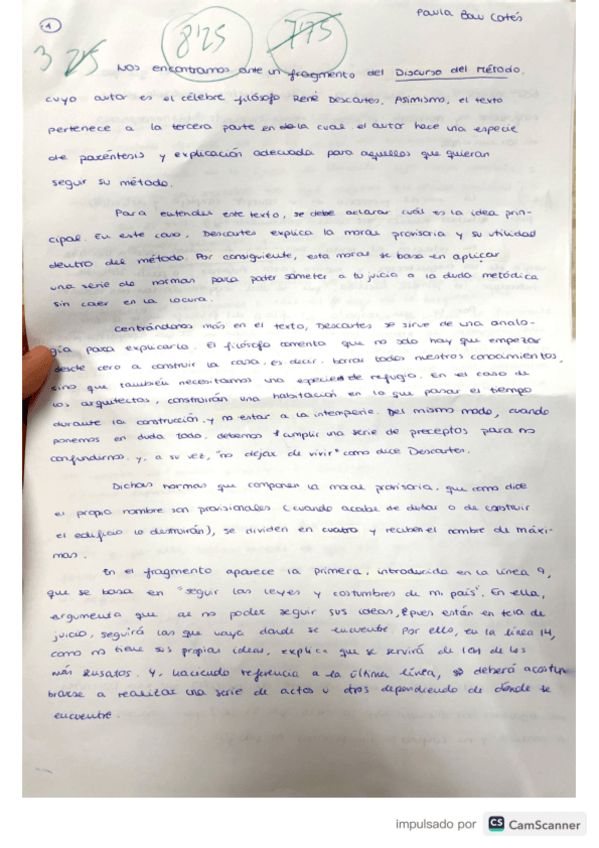 1
Paula Bau Cotés
3 25
8'25
7'75
Nos encontramos ante un fragmento del Discurso del Método,
cuyo autor es el célebre filósofo René Descartes. Asimismo, el texto
pertenece a la tercera parte en la cual el autor hace una especie
de paréntesis y explicación adecuada para aquellos que quieran
seguir su método.
Para entender este texto, se debe aclarar cuál es la idea prin-
cipal. En este caso, Descartes explica la moral provisoria y su utilidad
dentro del método. Por consiguiente, esta moral se basa en aplicar
una serie de normas para poder someter a tu juicio a la duda metódica
sin caer en la locura.
Centrándonos más en el texto, Descartes se sirve de una analo-
gía para explicarla. El filósofo comenta que no solo hay que empezar
desde cero a construir la casa, es decir, borrar todos nuestros conocimientos,
sino que también necesitamos una especie de refugio. En el caso de
los arquitectos, construirán una habitación en la que pasar el tiempo
durante la construcción y no estar a la intemperie. Del mismo modo, cuando
ponemos en duda todo, debemos cumplir una serie de preceptos para no
confundirnos y, a su vez, "no dejar de vivir" como dice Descartes.
Dichas normas que componen la moral provisoria, que como dice
el propio nombre son provisionales (cuando acabe de dudar o de construir
el edificio lo destruirán), se dividen en cuatro y reciben el nombre de máxi-
mas.
En el fragmento aparece la primera, introducida en la línea 9,
que se basa en "seguir las leyes y costumbres de mi país". En ella,
argumenta que al no poder seguir sus ideas, pues están en tela de
juicio, seguirá las que haya donde se encuentre. Por ello, en la línea 14,
como no tiene sus propias ideas, explica que se servirá de las de los
más sensatos. Y, haciendo referencia a la última línea, deberá acostum
brarse a realizar una serie de actos u otros dependiendo de dónde se
encuentre.
impulsado por CS CamScanner